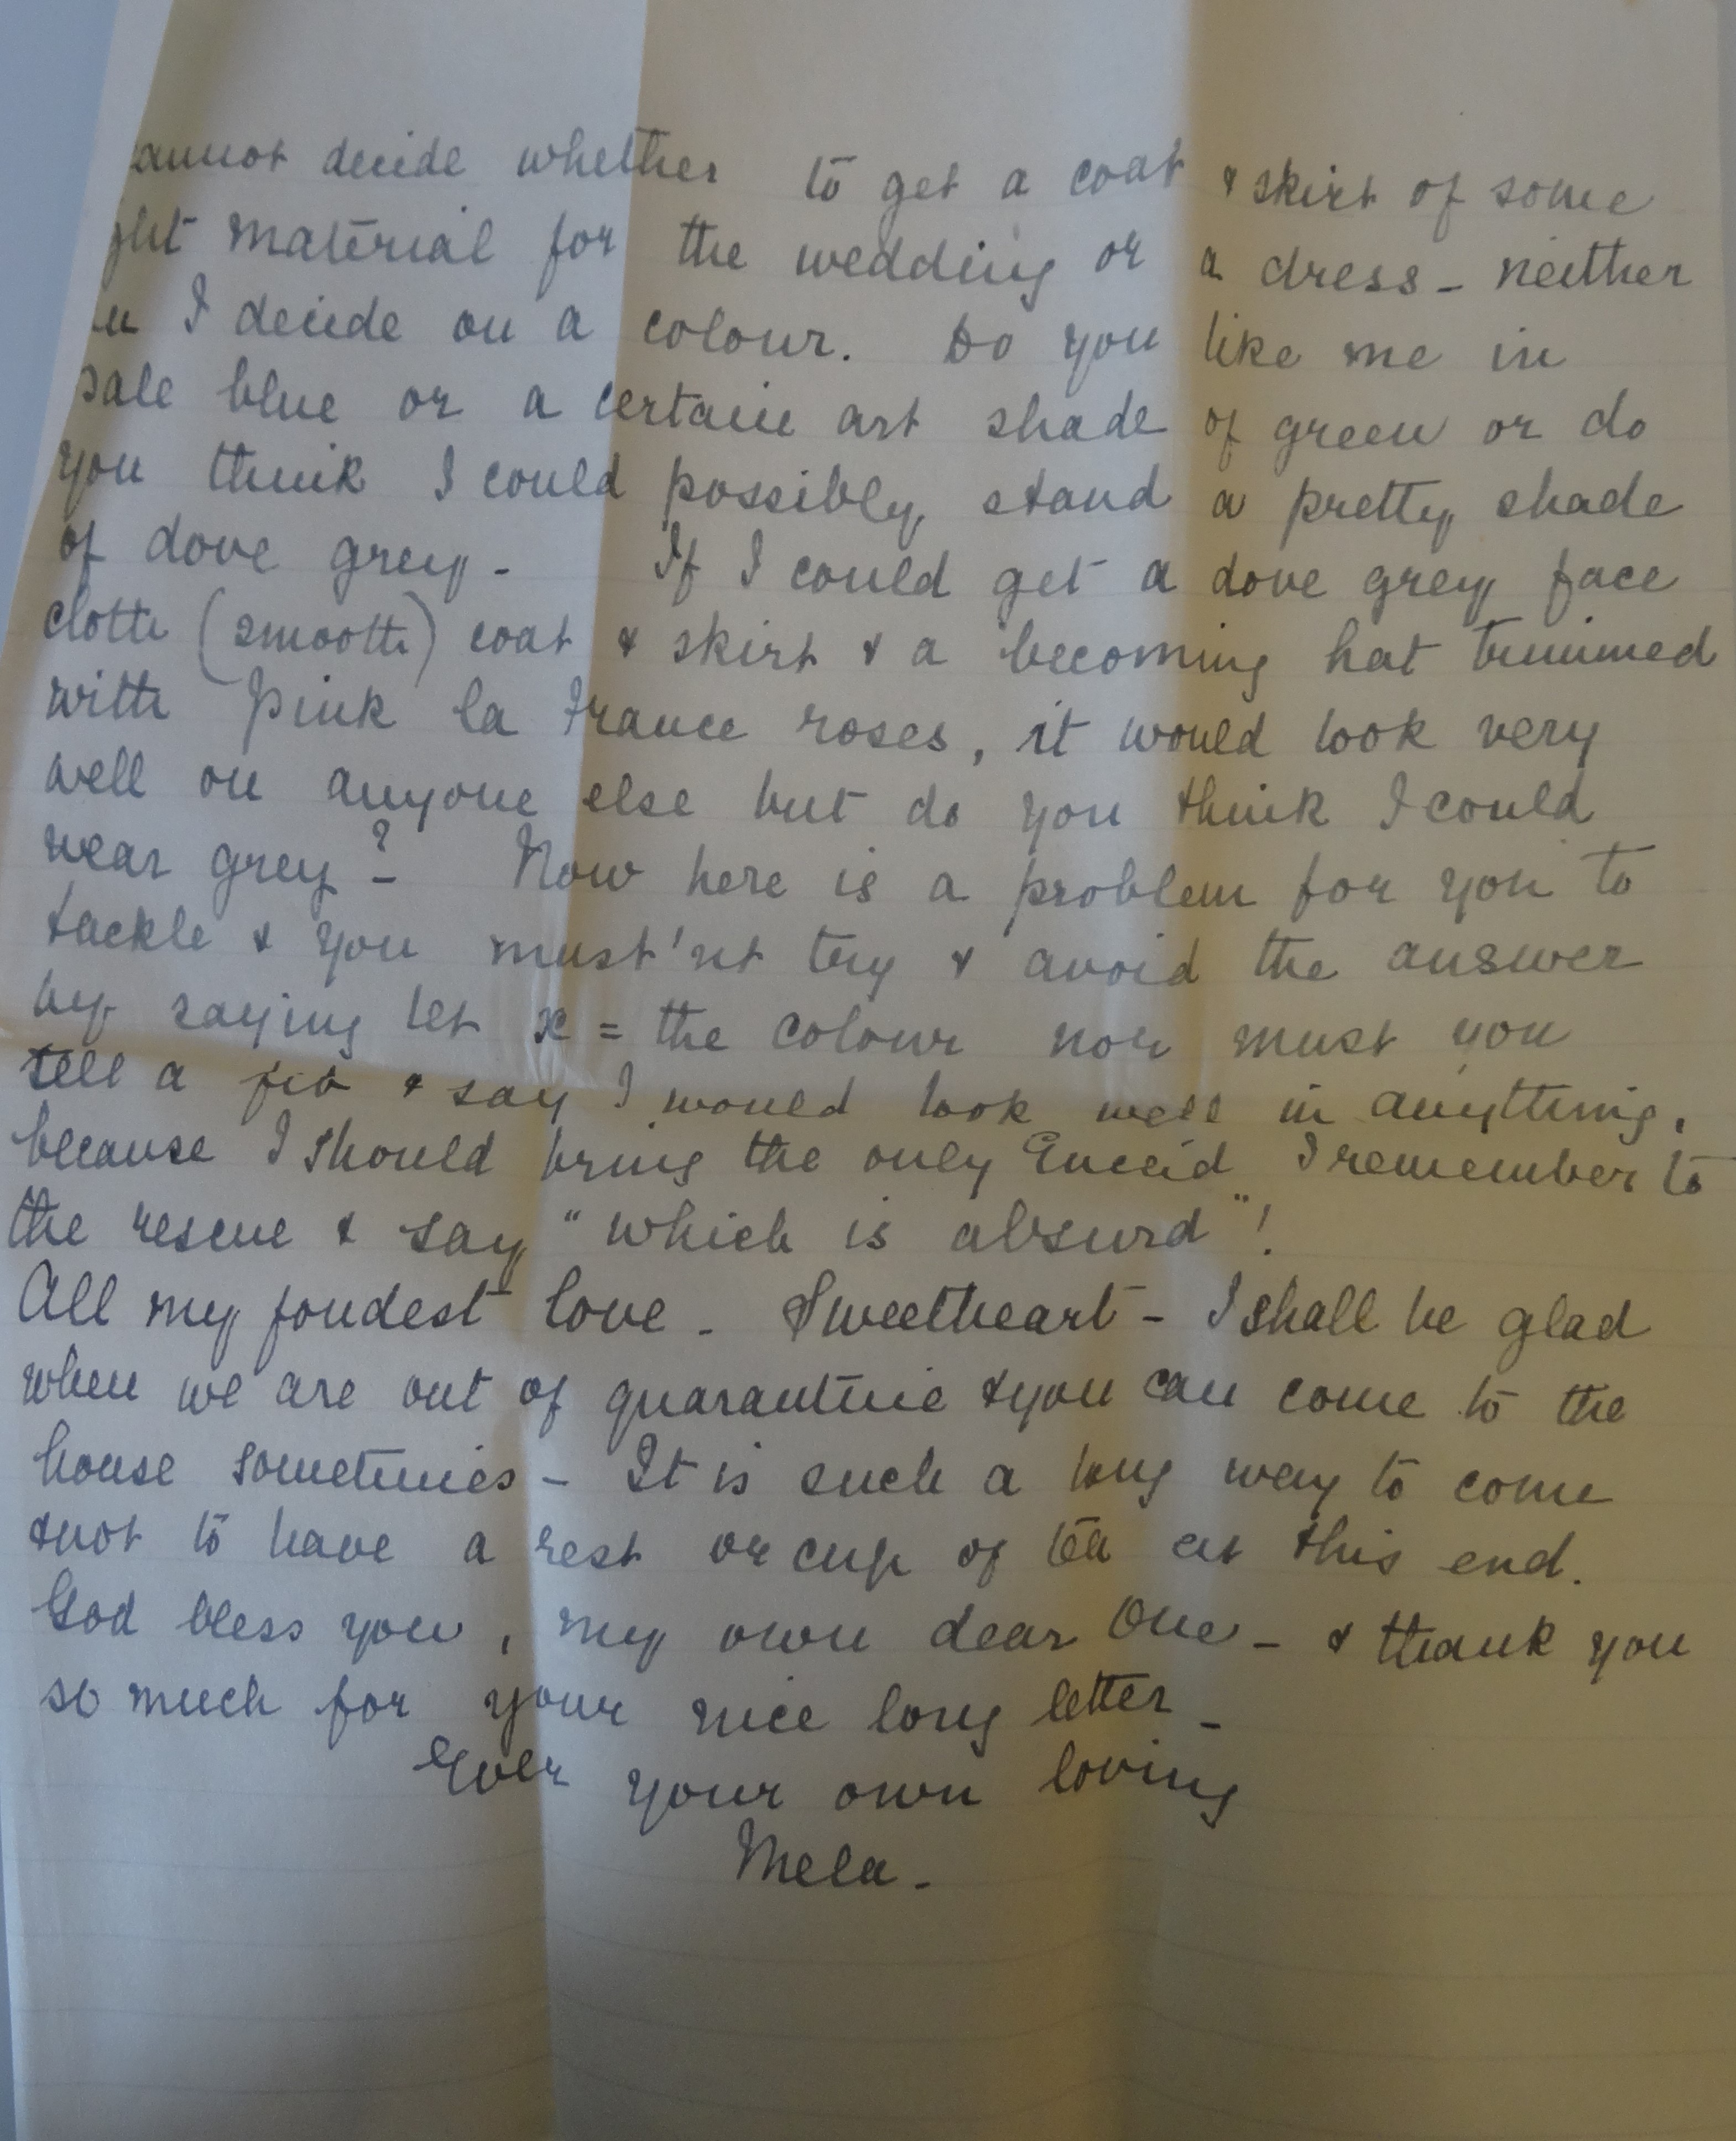 annot decide whether to get a coat & skirt of some
ght material for the wedding or a dress - neither
n I decide on a colour. Do you like me in
pale blue or a certain art shade of green or do
you think I could possibly stand a pretty shade
of dove grey - If I could get a dove grey face
cloth (smooth) coat & skirt & a becoming hat trimmed
with pink la France roses, it would look very
well on anyone else but do you think I could
wear grey? - Now here is a problem for you to
tackle & you must'nt try & avoid the answer
by saying let x = the colour nor must you
tell a fib & say I would look well in anything,
because I should bring the only Euclid I remember to
the rescue & say "which is absurd"!
All my fondest love - Sweetheart - I shall be glad
when we are out of quarantine & you can come to the
house sometimes - It is such a long way to come
& not to have a rest or cup of tea at this end.
God bless you, my own dear One - & thank you
so much for your nice long letter -
Ever your own loving
Mela -